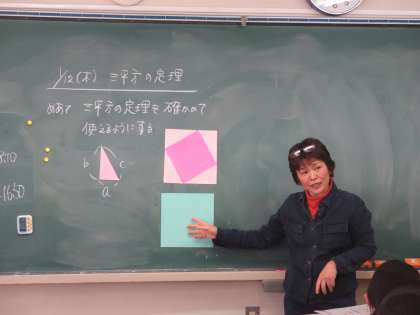 1/12(木) 三平方の定理
めあて 三平方の定理を確かめて
使えるようにする
b
c
a